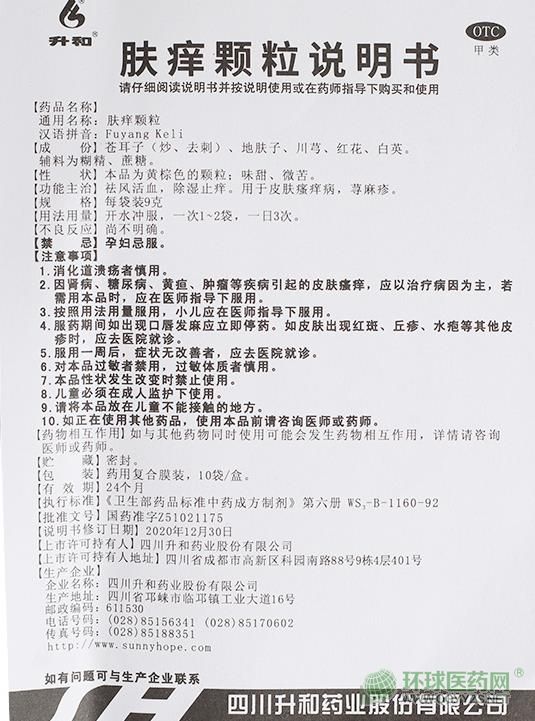 升和®
OTC
甲类
肤痒颗粒说明书
请仔细阅读说明书并按说明使用或在药师指导下购买和使用
【药品名称】
通用名称：肤痒颗粒
汉语拼音：Fuyang Keli
【成 份】苍耳子（炒、去刺）、地肤子、川芎、红花、白英。
辅料为糊精、蔗糖。
【性 状】本品为黄棕色的颗粒；味甜、微苦。
【功能主治】祛风活血，除湿止痒。用于皮肤瘙痒病，荨麻疹。
【规 格】每袋装9克
【用法用量】开水冲服，一次1~2袋，一日3次。
【不良反应】尚不明确。
【禁 忌】孕妇忌服。
【注意事项】
1.消化道溃疡者慎用。
2.因肾病、糖尿病、黄疸、肿瘤等疾病引起的皮肤瘙痒，应以治疗病因为主，若
需用本品时，应在医师指导下服用。
3.按照用法用量服用，小儿应在医师指导下服用。
4.服药期间如出现口唇发麻应立即停药。如皮肤出现红斑、丘疹、水疱等其他皮
疹时，应去医院就诊。
5.服用一周后，症状无改善者，应去医院就诊。
6.对本品过敏者禁用，过敏体质者慎用。
7.本品性状发生改变时禁止使用。
8.儿童必须在成人监护下使用。
9.请将本品放在儿童不能接触的地方。
10.如正在使用其他药品，使用本品前请咨询医师或药师。
【药物相互作用】如与其他药物同时使用可能会发生药物相互作用，详情请咨询
医师或药师。
【贮 藏】密封。
【包 装】药用复合膜装，10袋/盒。
【有 效 期】24个月
【执行标准】《卫生部药品标准中药成方制剂》第六册 WS₃-B-1160-92
【批准文号】国药准字Z51021175
【说明书修订日期】2020年12月30日
【上市许可持有人】四川升和药业股份有限公司
【上市许可持有人地址】四川省成都市高新区科园南路88号9栋4层401号
【生产企业】
企业名称：四川升和药业股份有限公司
生产地址：四川省邛崃市临邛镇工业大道16号
邮政编码：611530
电话号码：(028)85156341 (028)85170602
传真号码：(028)85188351
http://www.sunnyhope.com
如有问题可与生产企业联系
环球医药网®
四川升和药业股份有限公司